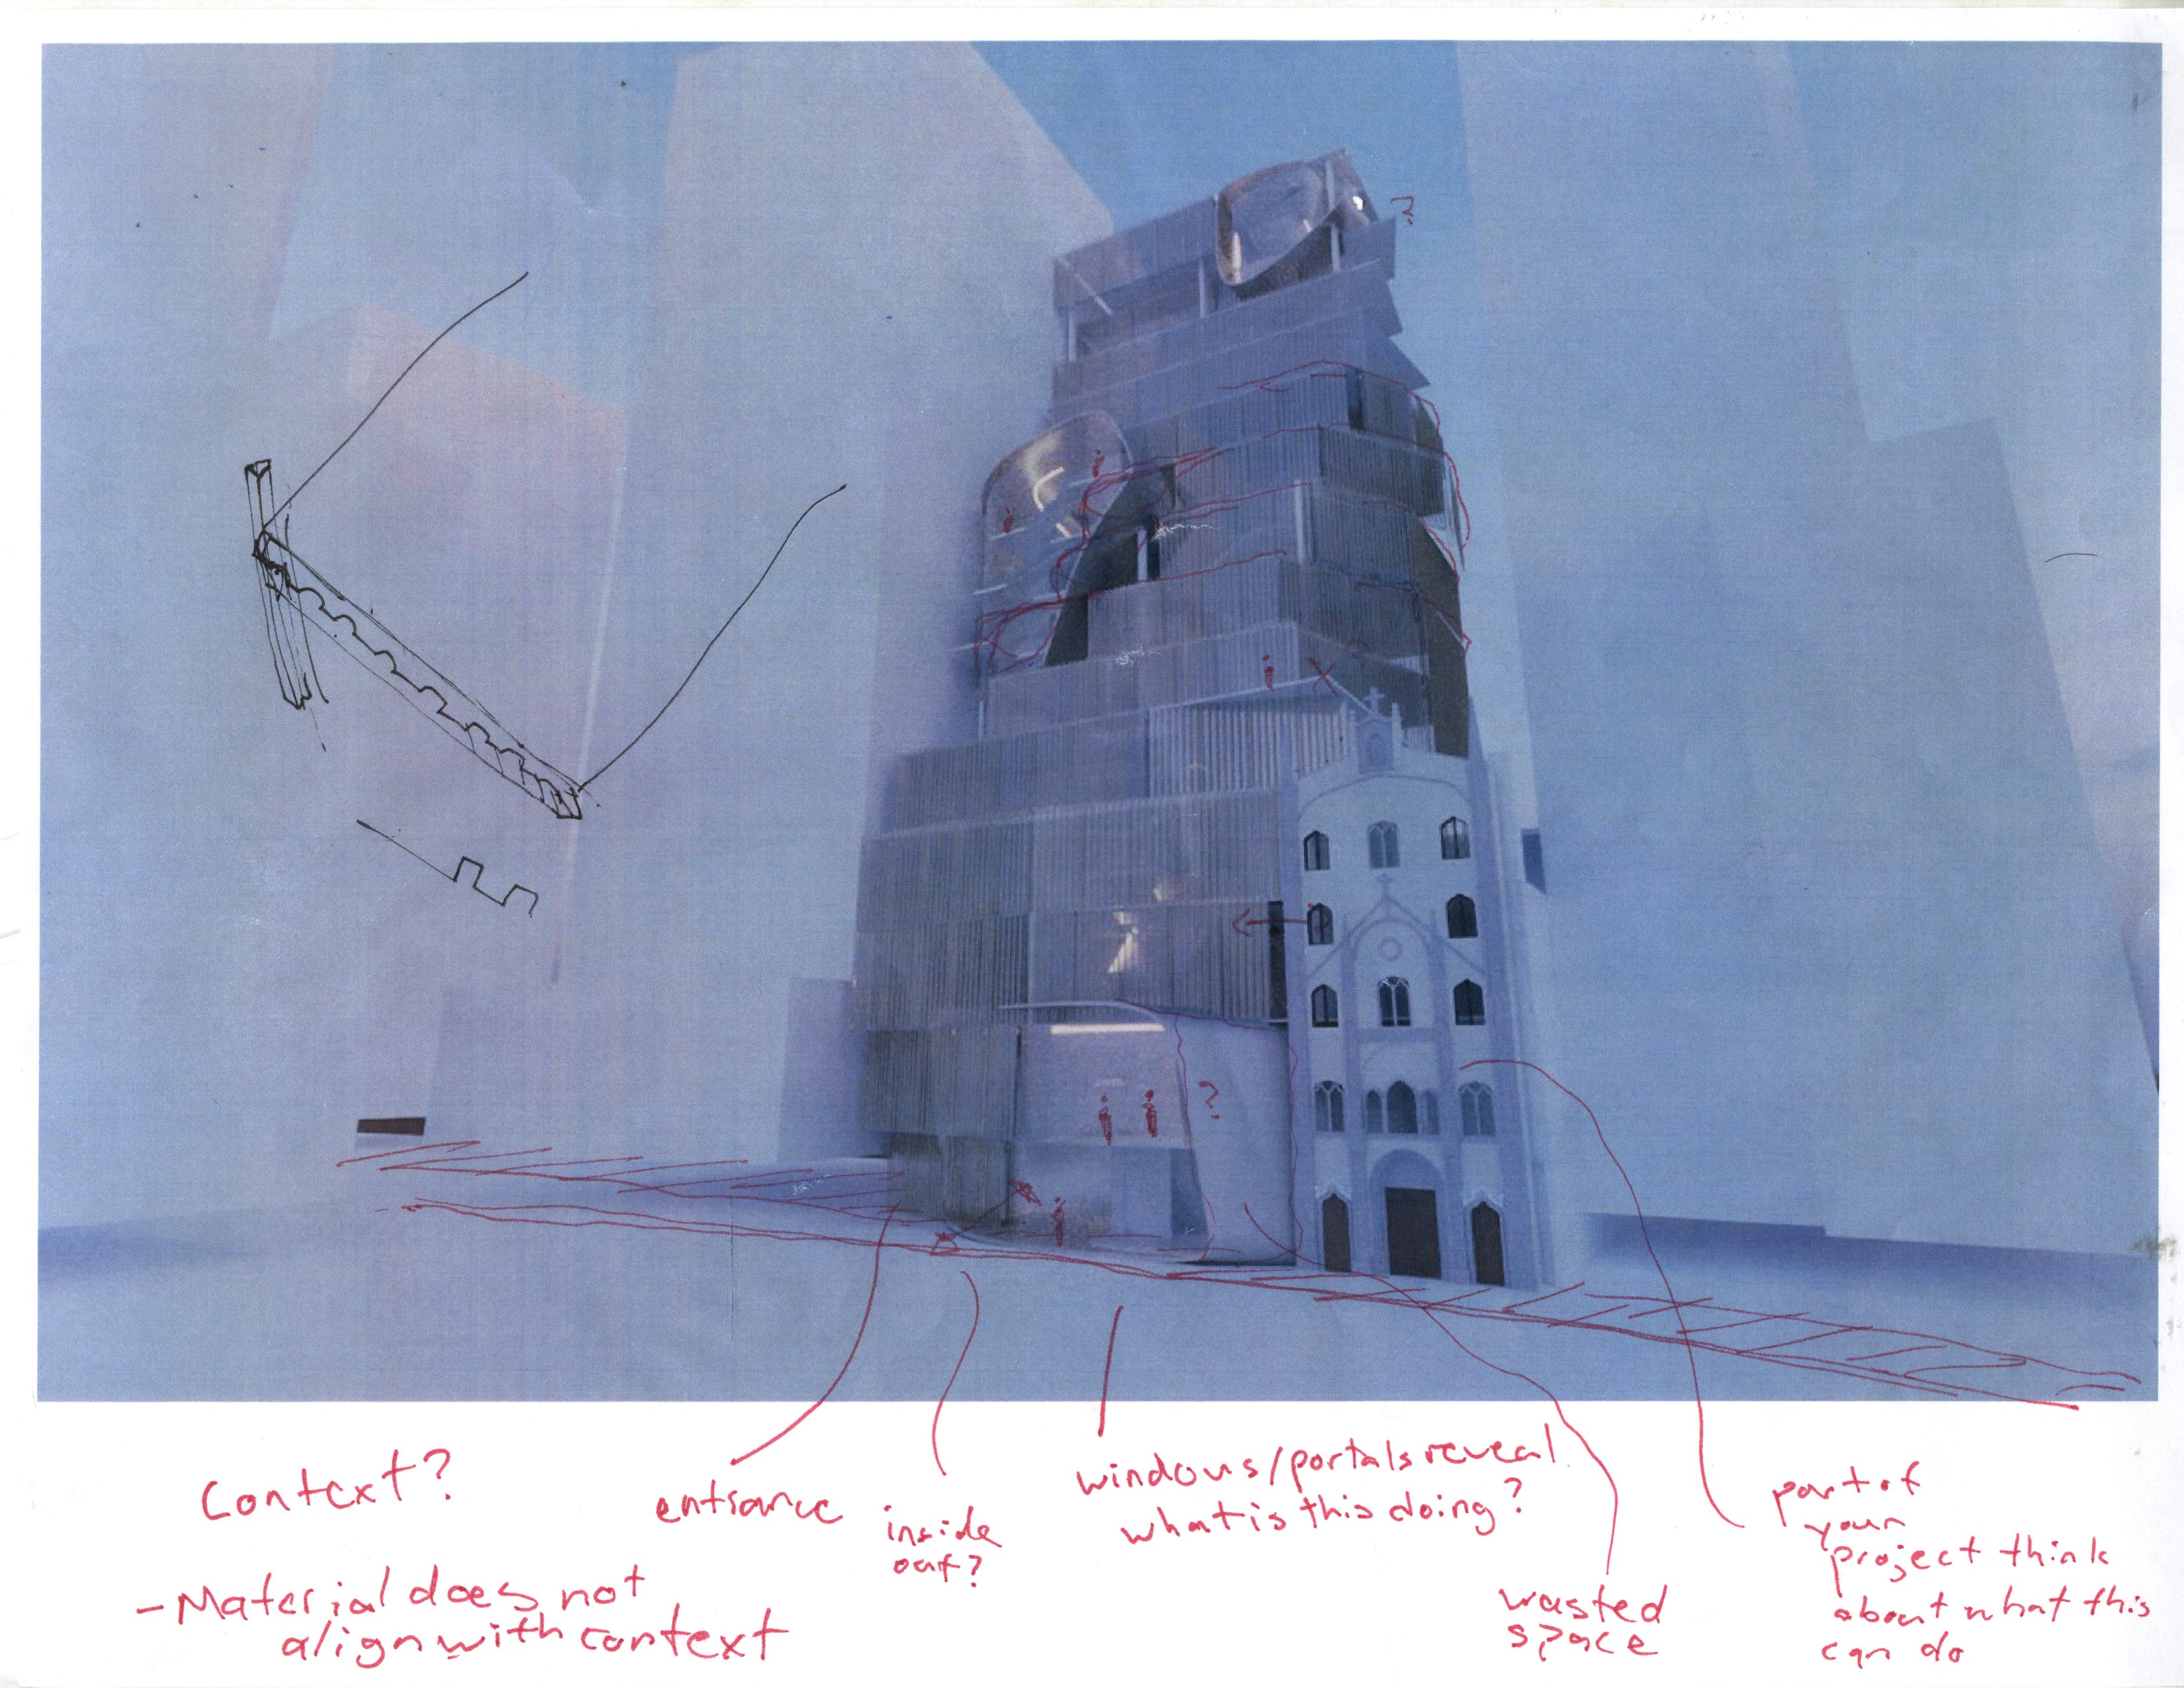 ?
?
x
?
Context?
- Material does not
align with context
entrance
inside
out?
windows/portals reveal
what is this doing?
wasted
space
part of
your
project think
about what this
can do